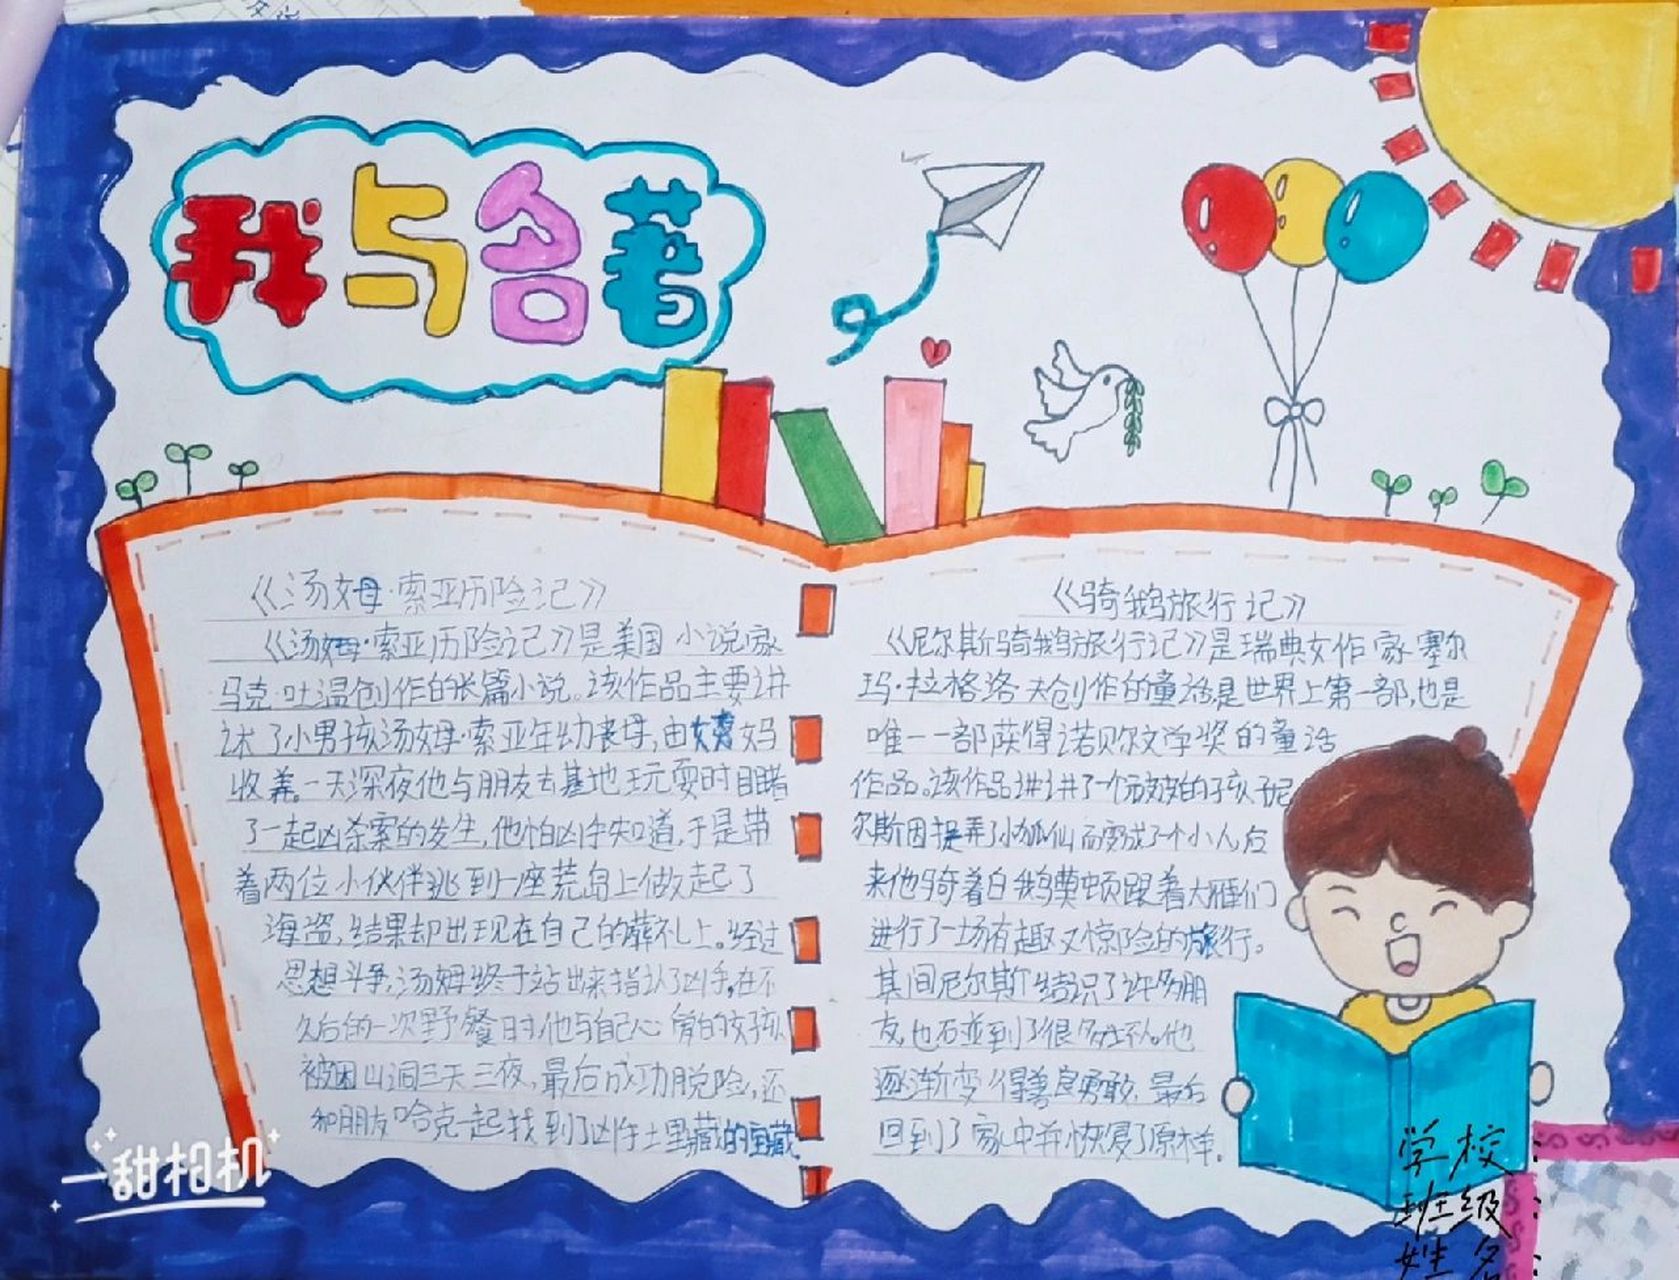 我与名著
《汤姆·索亚历险记》
《汤姆·索亚历险记》是美国小说家
马克·吐温创作的长篇小说。该作品主要讲
述了小男孩汤姆·索亚年幼丧母,由姨妈
收养。一天深夜他与朋友去墓地玩耍时目睹
了一起凶杀案的发生,他怕凶手知道,于是带
着两位小伙伴逃到一座荒岛上做起了
海盗,结果却出现在自己的葬礼上。经过
思想斗争,汤姆终于站出来指认了凶手,在不
久后的一次野餐时,他与自己心爱的女孩
被困山洞三天三夜,最后成功脱险,还
和朋友哈克一起找到了凶手土里藏的宝藏
《骑鹅旅行记》
《尼尔斯骑鹅旅行记》是瑞典女作家塞尔
玛·拉格洛夫创作的童话,是世界上第一部,也是
唯一一部获得诺贝尔文学奖的童话
作品。该作品讲讲了一个顽皮的孩子尼
尔斯因捉弄了小狐仙而变成了个小人后
来他骑着白鹅莫顿跟着大雁们
进行了一场有趣又惊险的旅行。
其间尼尔斯结识了许多朋
友,也碰到了很多坏人。他
逐渐变得善良勇敢,最后
回到了家中并恢复了原样。
学校:
班级:
姓名:
一甜相机